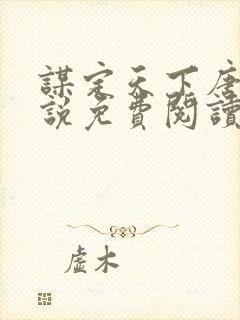 謀定天下唐
說免費閱讀
虛木